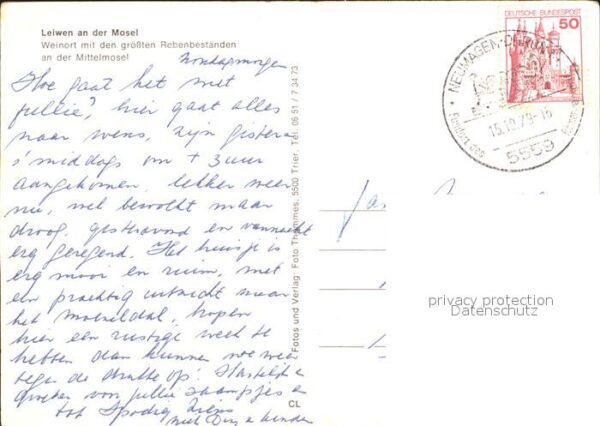 Leiwen an der Mosel
Weinort mit den größten Rebenbeständen
an der Mittelmosel
Hoe gaat het met
jullie? hier gaat alles
naar wens, zijn gisteren
's middags om + 3 uur
aangekomen, lekker weer
nu, wel bewolkt maar
droog, gisteravond en vannacht
erg geregend. Het huisje is
erg mooi en ruim, met
een prachtig uitzicht naar
het moezeldal, hopen
hier een rustige week te
hebben dan kunnen we weer
tegen de drukte op! Hartelijke
groeten van jullie
tot spoedig
CL
Fotos und Verlag: Foto Thammes, 5500 Trier, Tel. 06 51 / 7 34 73
DEUTSCHE BUNDESPOST
50
NEUMAGEN-DHRON
15.10.79-16
5559
privacy protection
Datenschutz